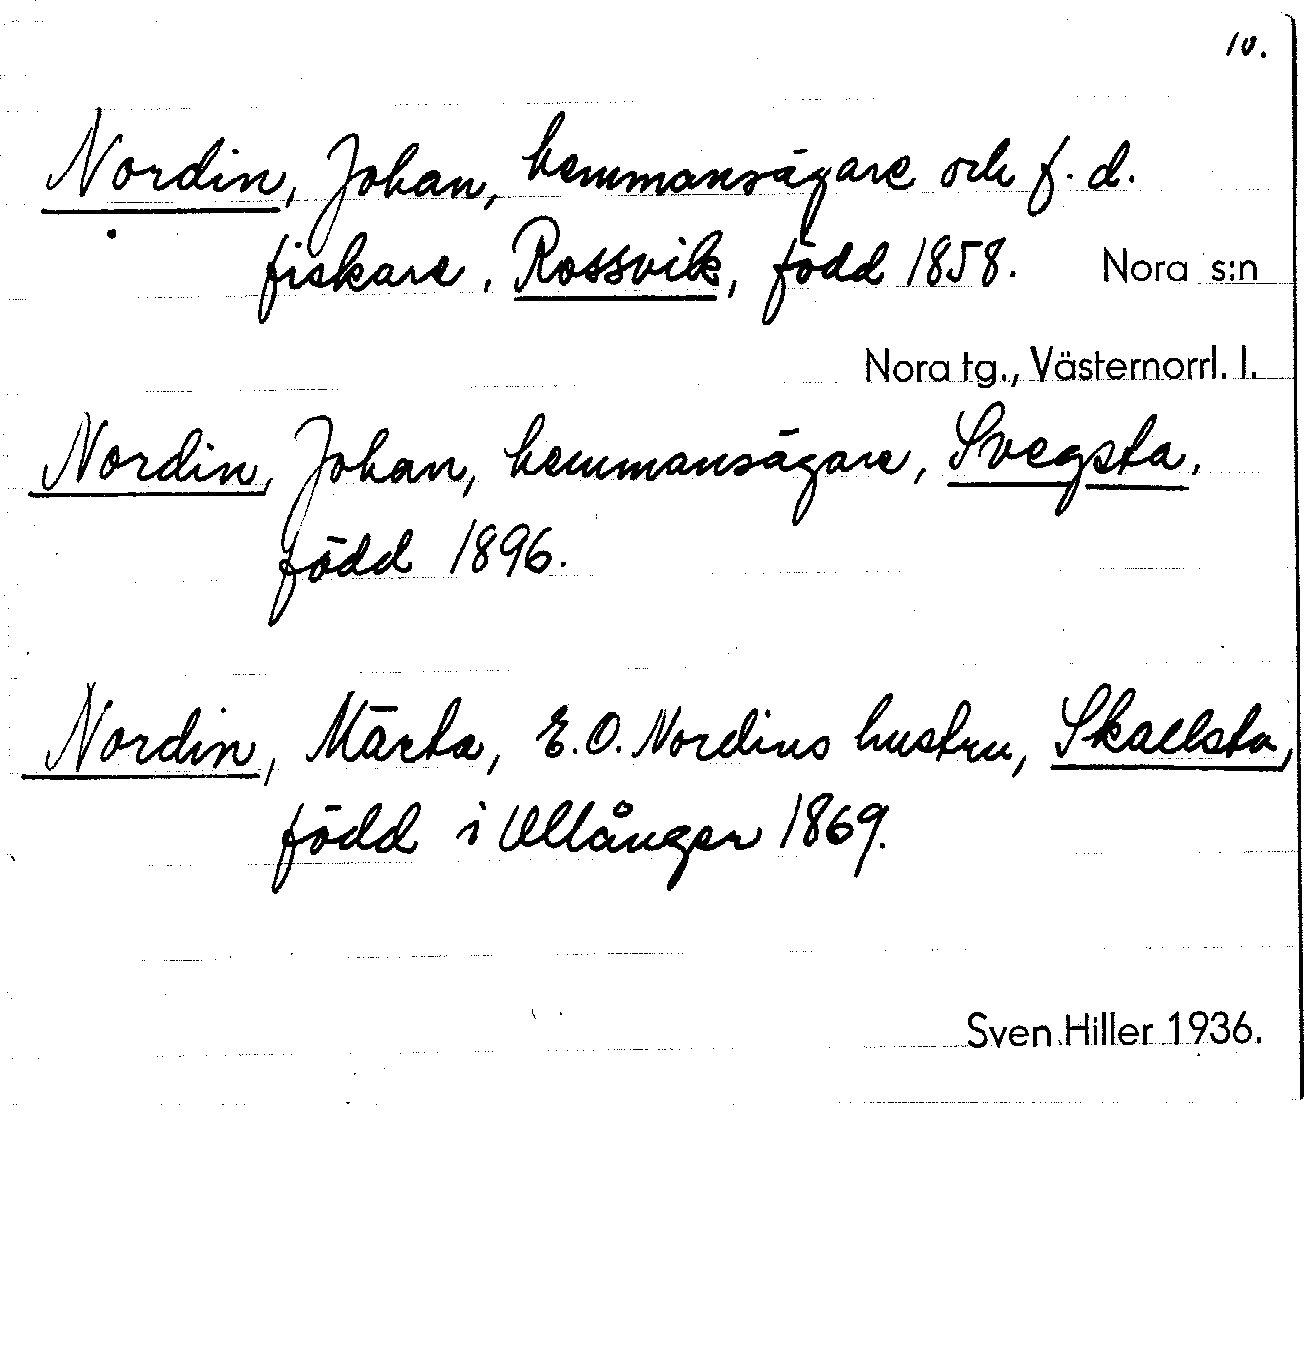 10.
Nordin, Johan, hemmansägare och f. d.
fiskare, Rossvik, född 1858. Nora s:n
Nora tg., Västernorrl. l.
Nordin, Johan, hemmansägare, Svegsta,
född 1896.
Nordin, Märta, E. O. Nordins hustru, Skallsta,
född i Ullånger 1869.
Sven Hiller 1936.